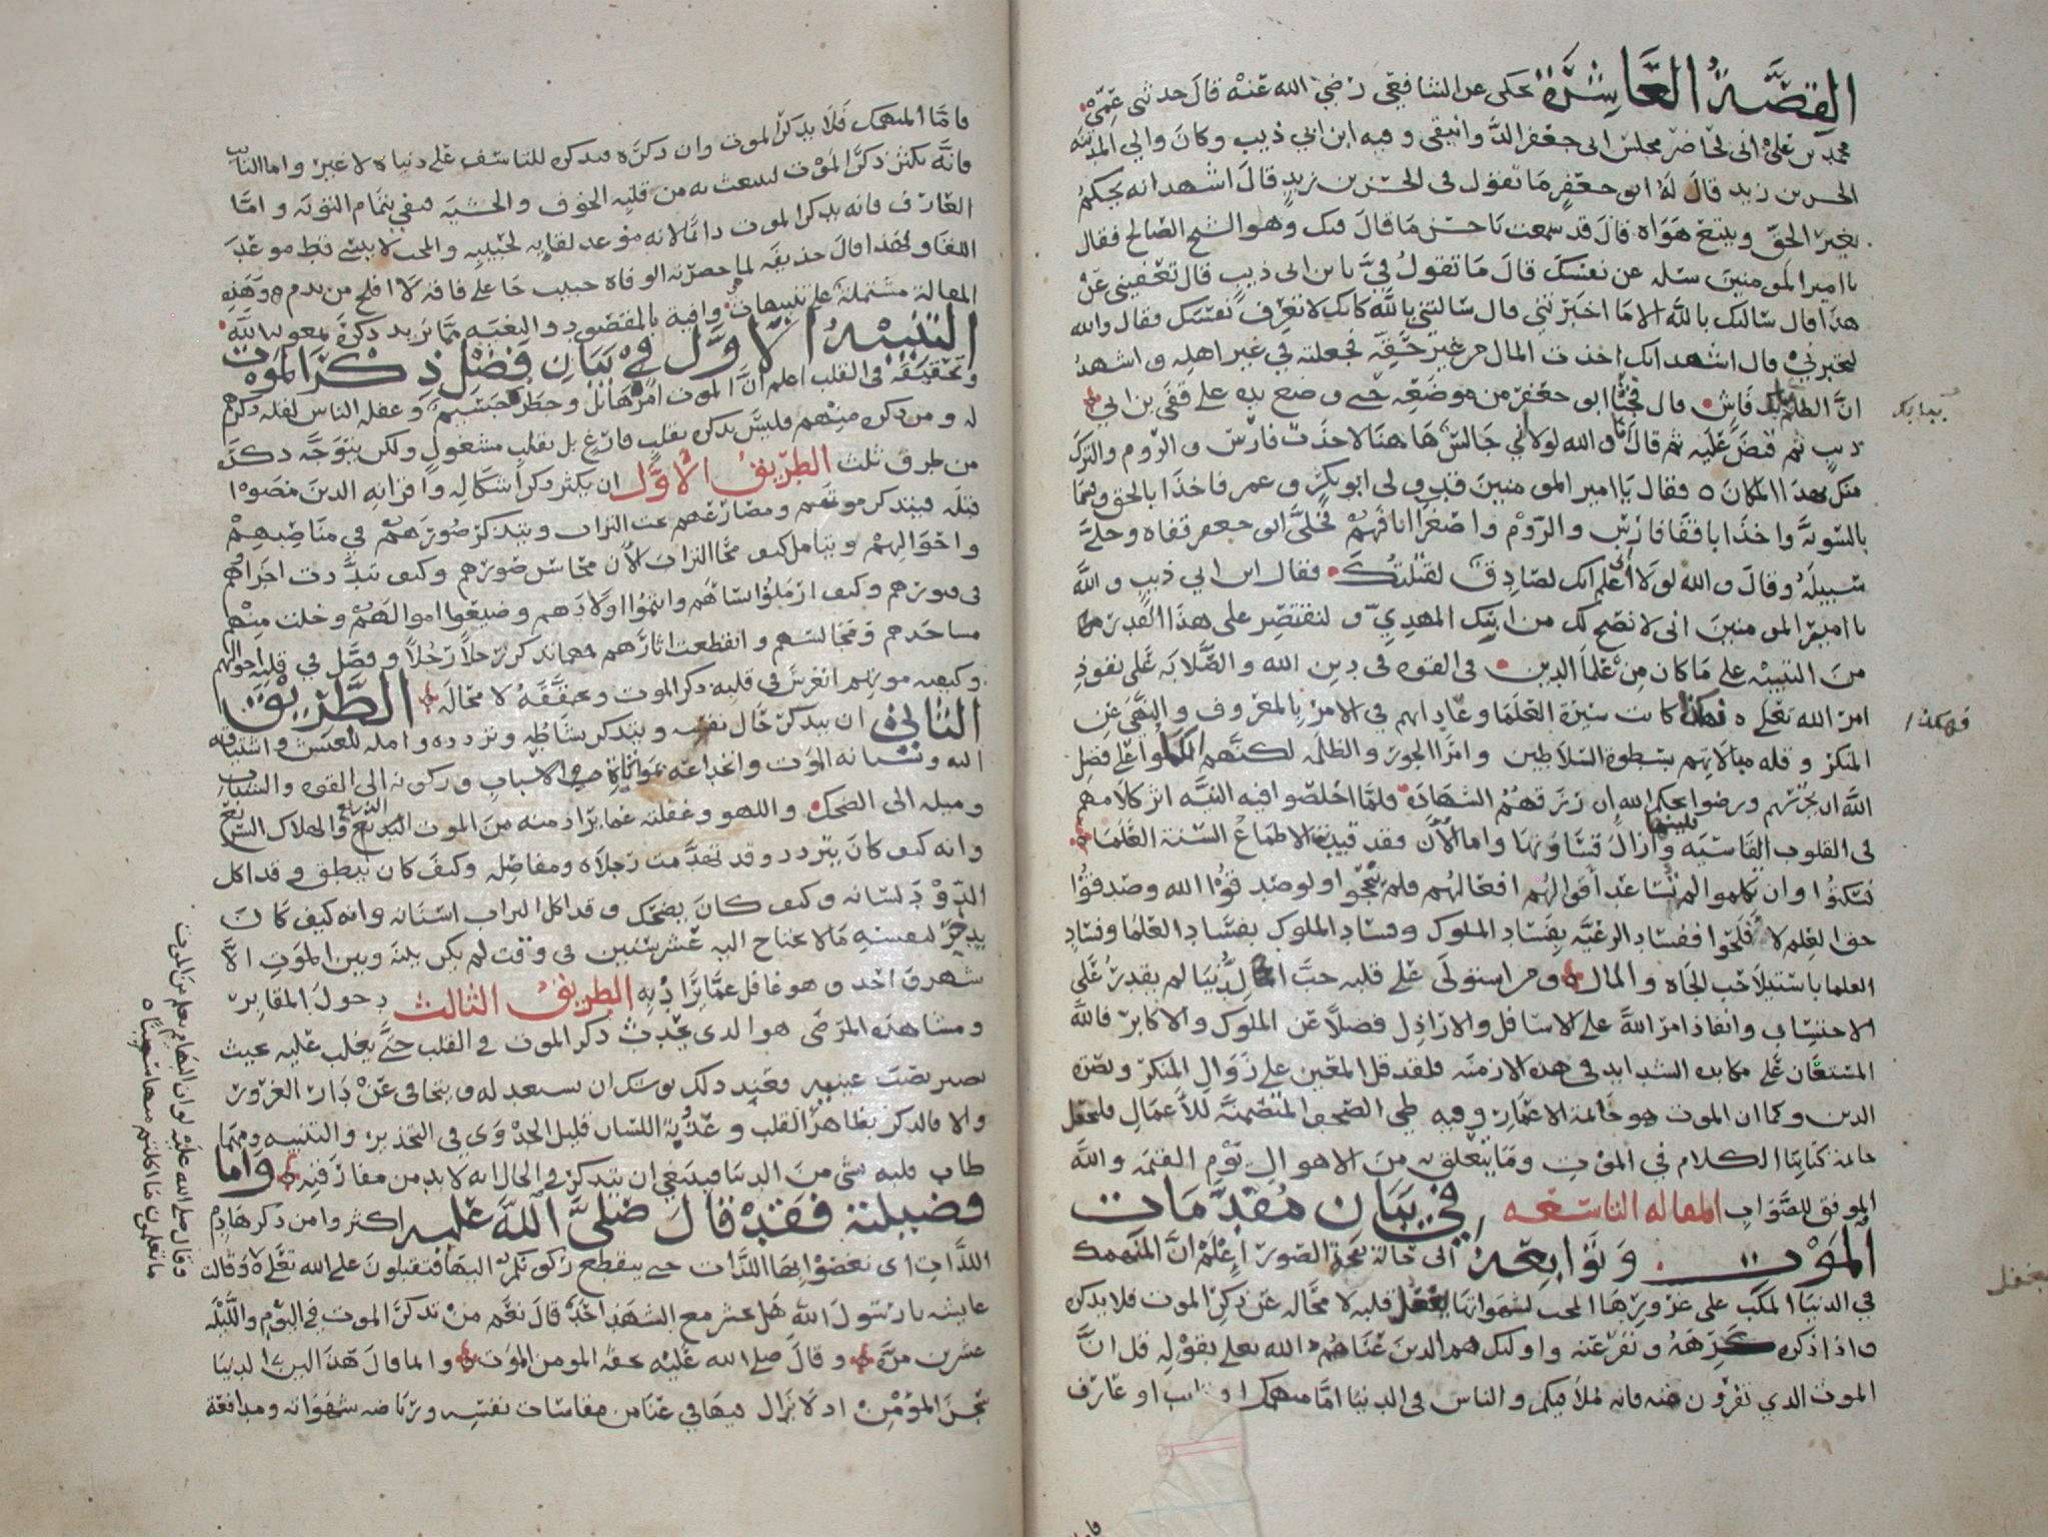 القصة العاشرة يحكى عن الشافعي رضي الله عنه قال حدثني عمي
محمد بن علي اني لحاضر مجلس ابي جعفر الدوانيقي وفيه ابن ابي ذيب وكان والي المدينة
الحسن بن زيد قال له ابو جعفر ما تقول في الحسن بن زيد قال اشهد انه يحكم
بغير الحق ويتبع هواه قال قد سمعت يا حسن ما قال فيك وهو الشيخ الصالح فقال
يا امير المومنين سله عن نفسك قال ما تقول في يا بن ابي ذيب قال تعفيني عن
هذا قال سالتك بالله الا ما اخبرتني قال سالتني بالله كانك لا تعرف نفسك فقال والله
لتخبرني قال اشهد انك اخذت المال من غير حقه فجعلته في غير اهله واشهد
ان الظلم ببابك فاش قال فجثا ابو جعفر من موضعه حتى وضع يده على قفى بن ابي
ذيب ثم قبض عليه ثم قال اما والله لولا اني جالس ها هنا لاخذت فارس والروم والترك
منك بهذا المكان فقال يا امير المومنين قد ولي ابو بكر وعمر فاخذا بالحق وقسما
بالسويه واخذا باقفا فارس والروم واصغرا انافهم فخلى ابو جعفر قفاه وخلى
سبيله وقال والله لولا اني اعلم انك لصادق لقتلتك فقال ابن ابي ذيب والله
يا امير المومنين اني لانصح لك من ابنك المهدي ولنقتصر على هذا القدر
من التنبيه على ما كان من علما الدين في القوه في دين الله والصلابه على نفوذ
امر الله تعلى فهكذا كانت سيرة العلما وعاداتهم في الامر بالمعروف والنهي عن
المنكر وقله مبالاتهم بسطوة السلاطين وامرا الجور والظلمه لكنهم اتكلوا على فضل
الله ان يحرسهم ورضوا بحكم الله ان رزقهم الشهاده فلما اخلصوا فيه النيه اثر كلامهم
في القلوب القاسيه فلينها وازال قساوتها واما الان فقد قيدت الاطماع السنة العلما
فسكتوا وان تكلموا لم تساعد اقوالهم افعالهم فلم ينجحوا ولو صدقوا الله وصدقوا
حق العلم لافلحوا ففساد الرعيه بفساد الملوك وفساد الملوك بفساد العلما وفساد
العلما باستيلا حب الجاه والمال ومن استولى على قلبه حب الدنيا لم يقدر على
الاحتساب وانفاذ امر الله على الاسافل والاراذل فضلا عن الملوك والاكابر فالله
المستعان على مكابده الشدايد في هذه الازمنه فلقد قل المعين على زوال المنكر ونصرة
الدين وكما ان الموت هو خاتمة الاعمار وفيه طي الصحف المتضمنة للاعمال فلنجعل
خاتمة كتابنا الكلام في الموت وما يتعلق به من الاهوال يوم القيمه والله
الموفق للصواب المقاله التاسعه في بيان مقدمات
الموت وتوابعه الى حالة نفخة الصور اعلم ان المنهمك
في الدنيا المكب على غرورها المحب لشهواتها يغفل قلبه لا محاله عن ذكر الموت فلا يذكره
واذا ذكره كرهه ونفر عنه واوليك هم الذين عناهم الله تعلى بقوله قل ان
الموت الذي تفرون منه فانه ملاقيكم والناس في الدنيا اما منهمك او تايب او عارف
ببابك
فهكذا
يغفل
فاما المنهمك فلا يذكر الموت وان ذكره فيذكره للتاسف على دنياه لا غير واما التايب
فانه يكثر ذكر الموت لينبعث به من قلبه الخوف والخشيه فيفي بتمام التوبه واما
العارف فانه يذكر الموت دائما لانه موعد لقايه لحبيبه والمحب لا ينسى قط موعد
اللقا ولهذا قال حذيفه لما حضرته الوفاة حبيب جا على فاقة لا افلح من ندم وهذه
المقالة مشتملة على تنبيهات وافية بالمقصود والبغيه مما نريد ذكره بمعونه الله
التنبيه الاول في بيان فضل ذكر الموت
وتحقيقه في القلب اعلم ان الموت امره هايل وخطره جسيم وغفله الناس لقله ذكرهم
له ومن ذكره منهم فليس يذكره بقلب فارغ بل بقلب مشغول ولكن يتوجه ذكره
من طرق ثلث الطريق الاول ان يكثر ذكر اشكاله واقرانه الذين مضوا
قبله فيتذكر موتهم ومصارعهم تحت التراب ويتذكر صورهم في مناصبهم
واحوالهم ويتامل كيف محا التراب الان محاسن صورهم وكيف تبددت اجزاهم
في قبورهم وكيف ارملوا نساهم وايتموا اولادهم وضيعوا اموالهم وخلت منهم
مساجدهم ومجالسهم وانقطعت اثارهم فمهما تذكر رجلا رجلا وفصل في قلبه احوالهم
وكيفيه موتهم انغرس في قلبه ذكر الموت وتحققه لا محاله الطريق
الثاني ان يتذكر حال نفسه ويتذكر نشاطه وتردده وامله للعيش واشتياقه
اليه ونسيانه الموت وانخداعه بمواتاة الاسباب وركونه الى القوه والشباب
وميله الى الضحك واللهو وغفلته عما يراد منه من الموت الذريع والهلاك السريع
وانه كيف كان يتردد وقد تهدمت رجلاه ومفاصله وكيف كان ينطق وقد اكل
الدود لسانه وكيف كان يضحك وقد اكل التراب اسنانه وانه كيف كان
يدخر لنفسه ما لا يحتاج اليه عشر سنين في وقت لم يكن بينه وبين الموت الا
شهر واحد وهو غافل عما يراد به الطريق الثالث دخول المقابر
ومشاهده المرضى هو الذي يحدث ذكر الموت في القلب حتى يغلب عليه بحيث
يصير نصب عينيه فعند ذلك يوشك ان يستعد له ويتجافى عن دار الغرور
والا فالذكر بظاهر القلب وعذبة اللسان قليل الجدوى في التحذير والتنبيه ومهما
طاب قلبه بشي من الدنيا فينبغي ان يتذكر في الحال انه لا بد من مفارقته واما
فضيلته فقد قال صلى الله عليه اكثروا من ذكر هادم
اللذات اي نغصوا بها اللذات حتى ينقطع ركونكم اليها فتقبلون على الله تعلى وقالت
عايشه يا رسول الله هل يحشر مع الشهدا احد قال نعم من تذكر الموت في اليوم والليله
عشرين مره وقال صلى الله عليه تحفة المومن الموت وانما قال هذا لان الدنيا
سجن المؤمن اذ لا يزال فيها في عنا من مقاسات نفسه ورياضه شهواته ومدافعة
وقال صلى الله عليه لو ان البهايم تعلم من الموت
ما تعلمون ما اكلتم منها سمينا